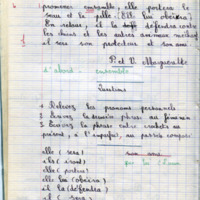 promener ensemble, elle portera le
seau et la pelle. Elle lui obéira.
En retour, il la défendra contre
les chiens et les autres animaux méchants
il sera son protecteur et son ami.
P. et V. Margueritte
d'abord ensemble
Questions
Relevez les pronoms personnels
Ecrivez la dernière phrase au féminin
Ecrivez la phrase entre crochets au
présent, à l'imparfait, au passé composé
elle (sera)
elle (portera)
elle lui (obéira)
il la (défendra)
il (sera)